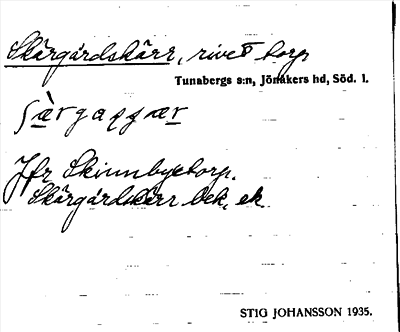 Skärgårdskärr, rivet torp
Tunabergs s:n, Jönåkers hd, Söd. l.
Jfr Skinnbyetorp.
Skärgårdskärr bek. ek.
STIG JOHANSSON 1935.